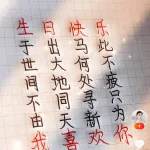 生于世间不由我
日出大地同天喜
快马何处寻新欢
乐比不疲只为你